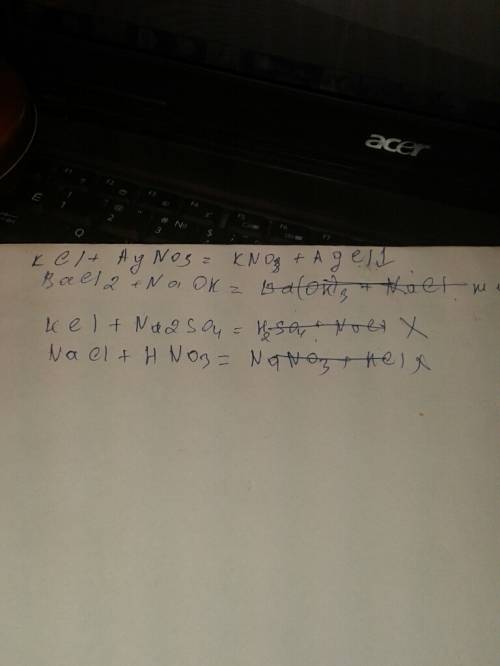 acer
KCl + AgNO3 = KNO3 + AgCl↓
BaCl2 + NaOH = Ba(OH)3 + NaCl
KCl + Na2SO4 = K2SO4 + NaCl X
NaCl + HNO3 = NaNO3 + HCl X